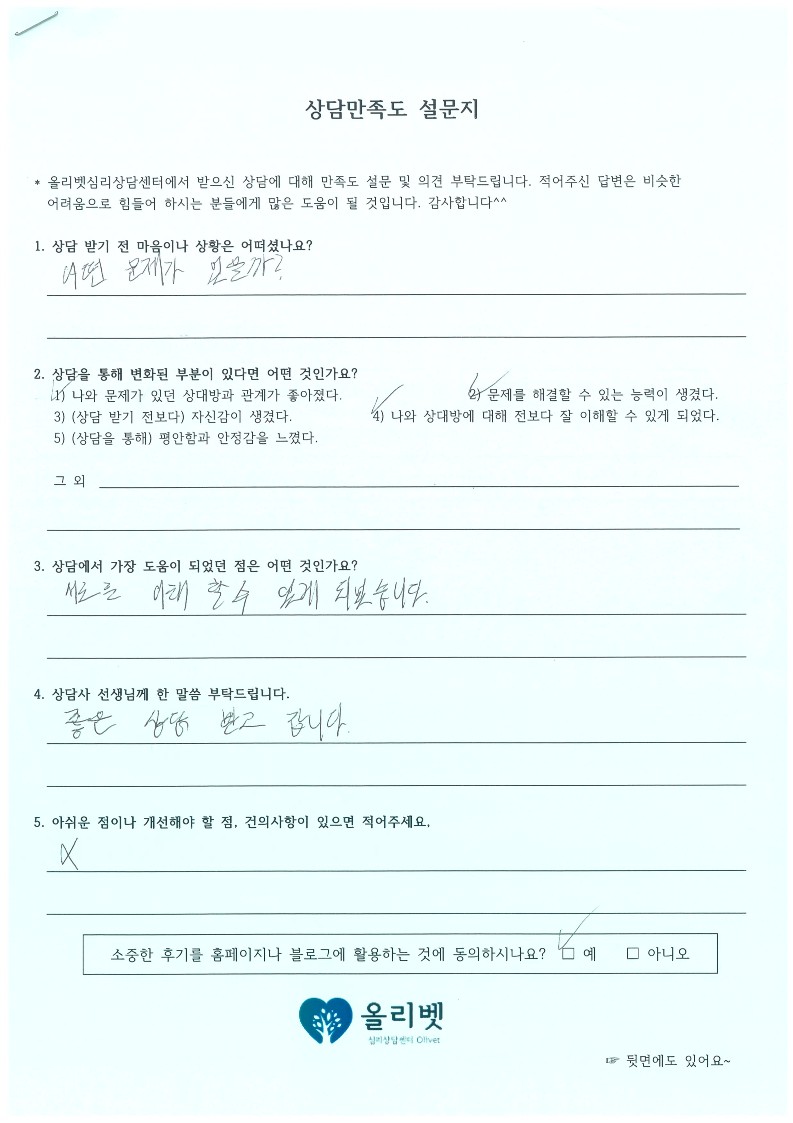 상담만족도 설문지
* 올리벳심리상담센터에서 받으신 상담에 대해 만족도 설문 및 의견 부탁드립니다. 적어주신 답변은 비슷한
어려움으로 힘들어 하시는 분들에게 많은 도움이 될 것입니다. 감사합니다^^
1. 상담 받기 전 마음이나 상황은 어떠셨나요?
어떤 문제가 있을까?
2. 상담을 통해 변화된 부분이 있다면 어떤 것인가요?
1) 나와 문제가 있던 상대방과 관계가 좋아졌다. 2) 문제를 해결할 수 있는 능력이 생겼다.
3) (상담 받기 전보다) 자신감이 생겼다. 4) 나와 상대방에 대해 전보다 잘 이해할 수 있게 되었다.
5) (상담을 통해) 평안함과 안정감을 느꼈다.
그 외
3. 상담에서 가장 도움이 되었던 점은 어떤 것인가요?
서로를 이해 할 수 있게 되었습니다.
4. 상담사 선생님께 한 말씀 부탁드립니다.
좋은 상담 받고 갑니다.
5. 아쉬운 점이나 개선해야 할 점, 건의사항이 있으면 적어주세요.
X
소중한 후기를 홈페이지나 블로그에 활용하는 것에 동의하시나요? □ 예 □ 아니오
올리벳
심리상담센터 Olivet
☞ 뒷면에도 있어요~